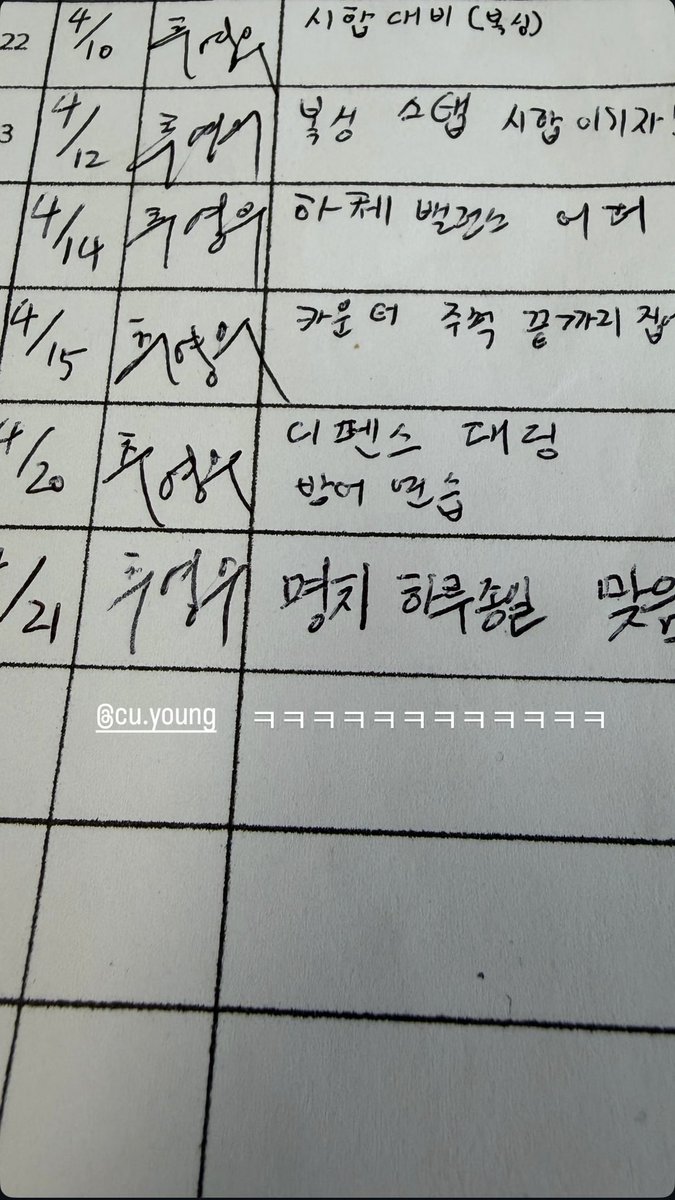 22 4/10 추영우 시합 대비 (복싱)
3 4/12 추영우 복싱 스탭 시합 이기자!
4/14 추영우 하체 밸런스 어퍼
4/15 추영우 카운터 주먹 끝까지
4/20 추영우 디펜스 대링
방어 연습
/21 추영우 명지 하루종일 맞음
@cu.young ㅋㅋㅋㅋㅋㅋㅋㅋㅋㅋㅋㅋ